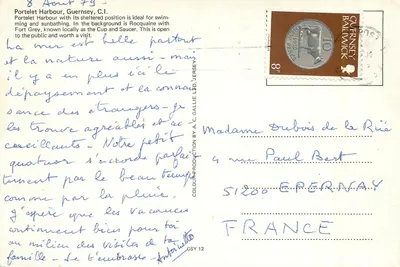 8 Août 79 -
Portelet Harbour, Guernsey, C.I.
Portelet Harbour with its sheltered position is ideal for swim-
ming and sunbathing. In the background is Rocquaine with
Fort Grey, known locally as the Cup and Saucer. This is open
to the public and worth a visit.
La mer est belle partout
et la nature aussi - mais
il y a en plus ici le
dépaysement et la connais
sance des étrangers - je
les trouve agréables et ac
cueillants - Notre petit
quatuor s'accorde parfai
tement par le beau temps
comme par la pluie.
J'espère que les vacances
continuent bien pour toi
au milieu des visites de ta
famille - Je t'embrasse -
Antoinette
COLOUR PRODUCTION BY A. C. GALLIE LTD. JERSEY
GSY 12
GUERNSEY
BAILIWICK
8
Madame Dubois de la Rüe
4 rue Paul Bert
51200 EPERNAY
FRANCE